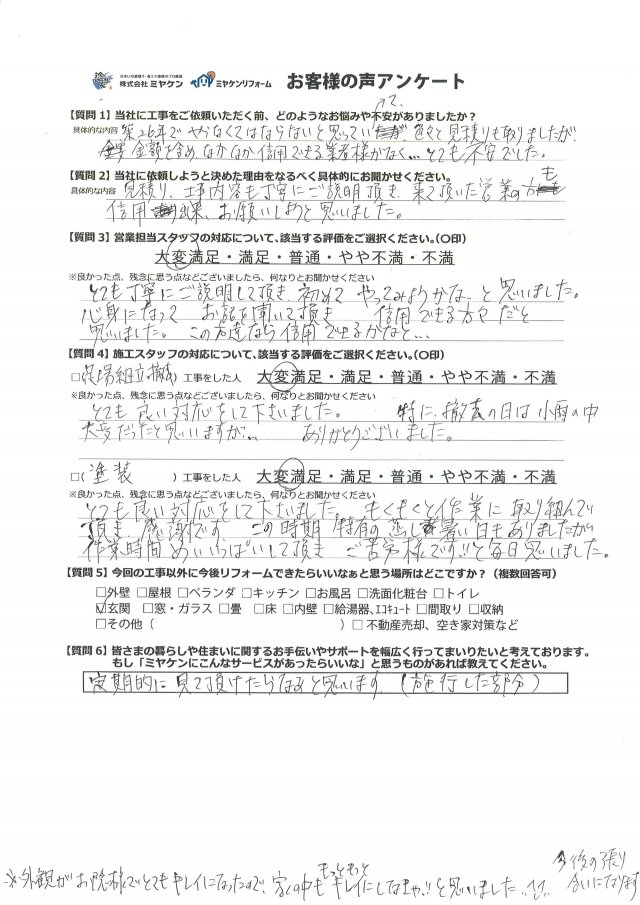 住まいの塗替え・省エネ塗装のプロ集団
株式会社 ミヤケン ミヤケンリフォーム お客様の声アンケート
【質問 1】当社に工事をご依頼いただく前、どのようなお悩みや不安がありましたか?
具体的な内容 築26年で やらなくてはならないと思っていて、色々と見積りも取りましたが、
金額を含め、なかなか信用できる業者様がなく… とても 不安でした。
【質問 2】当社に依頼しようと決めた理由をなるべく具体的にお聞かせください。
具体的な内容 見積り、工事内容も丁寧にご説明頂き、来て頂いた営業の方も
信用出来、お願いしようと思いました。
【質問 3】営業担当スタッフの対応について、該当する評価をご選択ください。(〇印)
大変満足・満足・普通・やや不満・不満
※良かった点、残念に思う点などございましたら、何なりとお聞かせください
とても丁寧にご説明して頂き、初めて やってみようかな、と思いました。
心身になって お話を聞いて頂き 信用できる方々だと
思いました。この方達なら信用できるかなと…
【質問 4】施工スタッフの対応について、該当する評価をご選択ください。(〇印)
□(足場組立撤去)工事をした人 大変満足・満足・普通・やや不満・不満
※良かった点、残念に思う点などございましたら、何なりとお聞かせください
とても良い対応をして下さいました。 特に、撤去の日は小雨の中
大変だったと思いますが… ありがとうございました。
□(塗装 )工事をした人 大変満足・満足・普通・やや不満・不満
※良かった点、残念に思う点などございましたら、何なりとお聞かせください
とても良い対応をして下さいました。もくもくと作業に取り組んで
頂き 感謝です この時期 特有の蒸し暑い日もありましたが
作業時間めいいっぱいして頂き ご苦労様です!!と毎日思いました。
【質問 5】今回の工事以外に今後リフォームできたらいいなぁと思う場所はどこですか?(複数回答可)
□外壁 □屋根 □ベランダ □キッチン □お風呂 □洗面化粧台 □トイレ
☑玄関 □窓・ガラス □畳 □床 □内壁 □給湯器、エコキュート □間取り □収納
□その他( ) □不動産売却、空き家対策など
【質問 6】皆さまの暮らしや住まいに関するお手伝いやサポートを幅広く行ってまいりたいと考えております。
もし「ミヤケンにこんなサービスがあったらいいな」と思うものがあれば教えてください。
定期的に見て頂けたらなぁと思います (施行した部分)
※外観がお陰様でとてもキレイになったので、家の中ももっともっとキレイにしなきゃ!!と思いました
今後の張り
合いになります